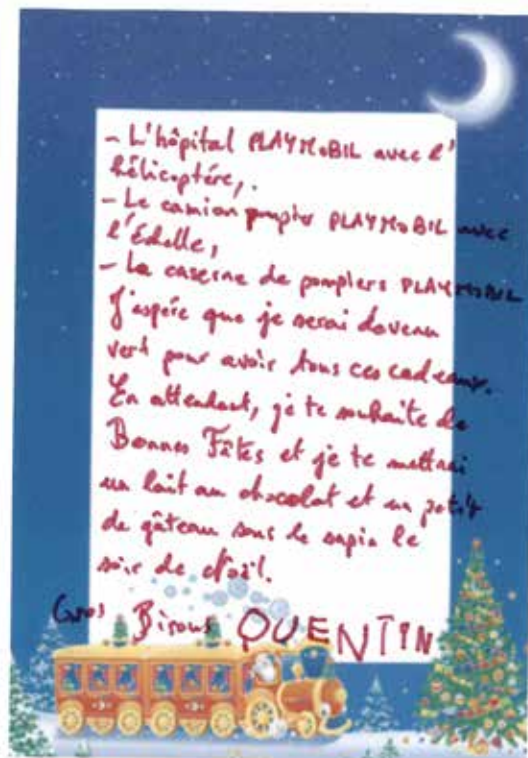 - L'hôpital PLAYMOBIL avec l'
hélicoptère,.
- Le camion pompier PLAYMOBIL avec
l'Échelle,
- La caserne de pompiers PLAYMOBIL
J'espère que je serai devenu
vert pour avoir tous ces cadeaux.
En attendant, je te souhaite de
Bonnes Fêtes et je te mettrai
un lait au chocolat et un petit
de gâteau sous le sapin le
soir de Noël.
Gros Bisous QUENTIN